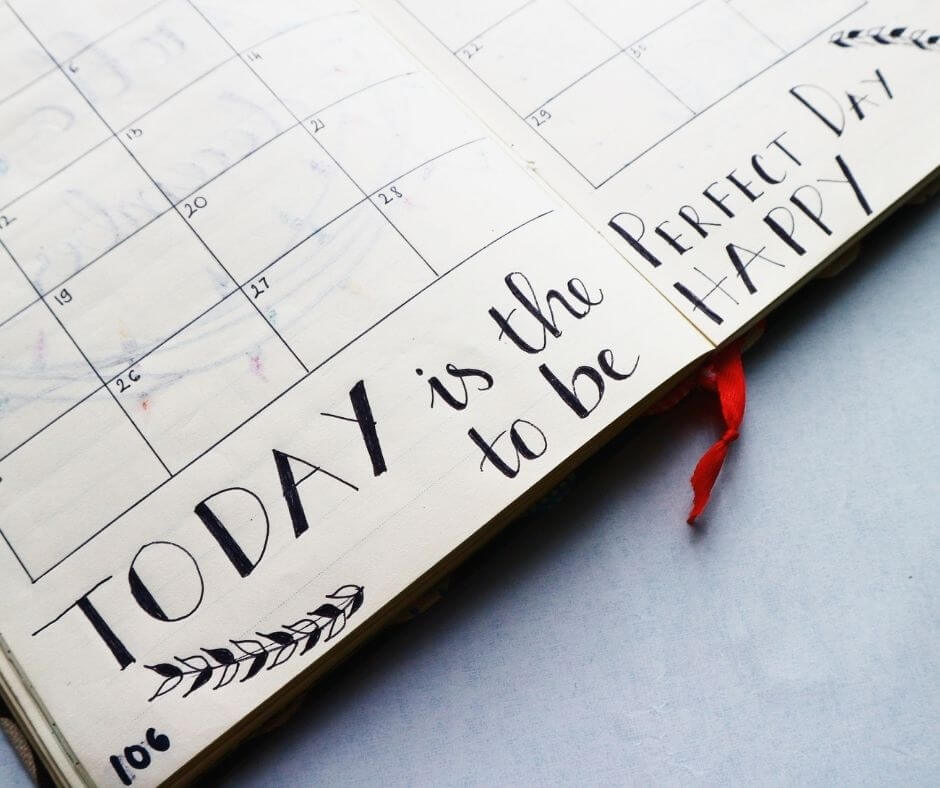 6
12 13 14
19 20 21
26 27 28
22
29 30
TODAY is the PERFECT DAY
to be HAPPY
106